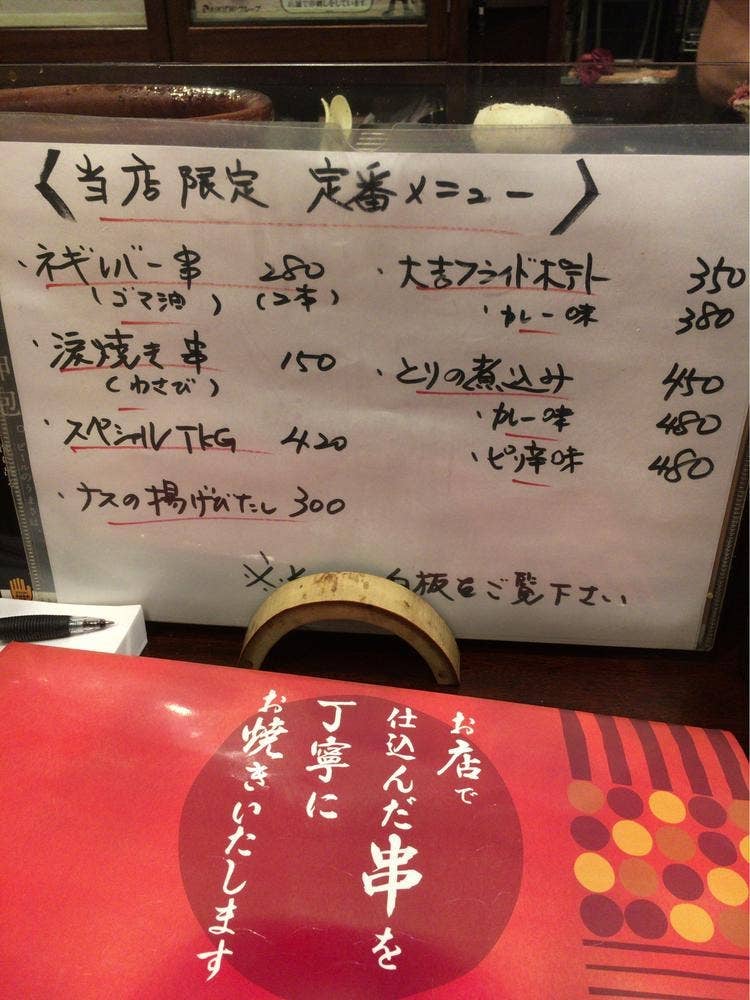 〈当店限定 定番メニュー〉
・ネギレバー串 280
(ゴマ油) (2本)
・涙焼き串 150
(わさび)
・スペシャルTKG 420
・ナスの揚げびたし 300
・大吉フライドポテト 350
・カレー味 380
・とりの煮込み 450
・カレー味 480
・ピリ辛味 480
白板をご覧下さい
お店で
仕込んだ串を
丁寧に
お焼きいたします